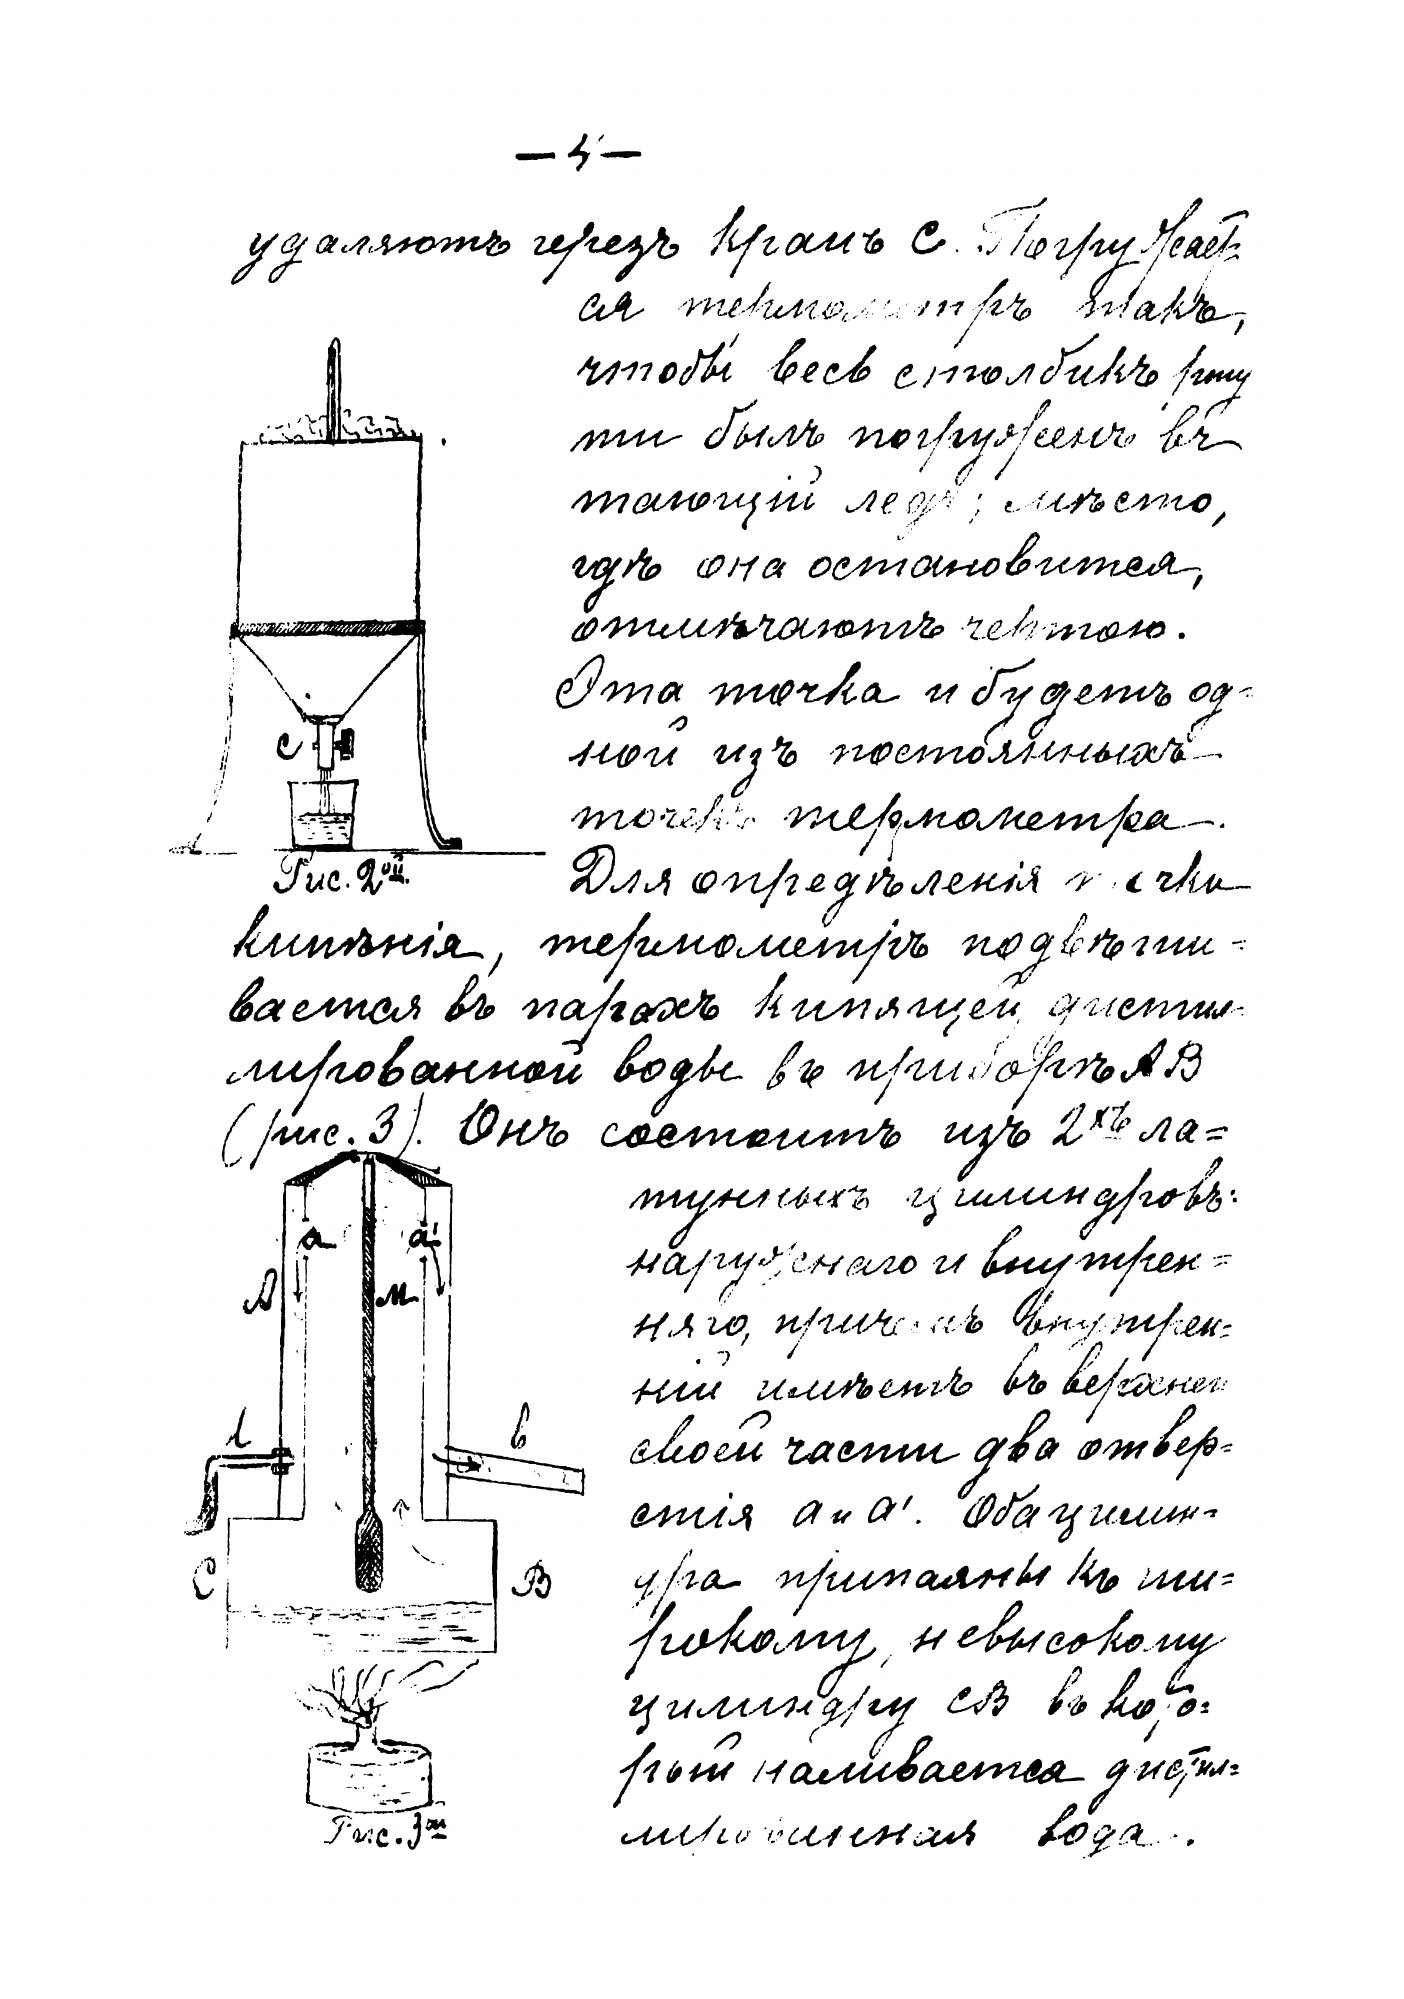 — 4 —
удаляютъ черезъ кранъ С. Погружает-
ся термометръ такъ,
чтобы весь столбикъ рту
ти былъ погруженъ въ
тающій ледъ; мѣсто,
гдѣ она остановится,
отмѣчаютъ чертою.
Эта точка и будетъ од-
ной изъ постоянныхъ
точекъ термометра.
С
Рис. 2ой.
Для опредѣленія точки
кипѣнія, термометръ подвѣши-
вается въ парахъ кипящей дистил-
лированной воды въ приборѣ АВ
(рис. 3). Онъ состоитъ изъ 2хъ ла=
тунныхъ цилиндровъ:
наружнаго и внутрен=
няго, причемъ внутрен=
ній имѣетъ въ верхней
своей части два отвер=
стія а и а'. Оба цилин=
дра припаяны къ ши=
рокому, невысокому
цилиндру СВ въ кото=
рый наливается дистил=
лированная вода.
а а'
А М
l в
С В
Рис. 3ій